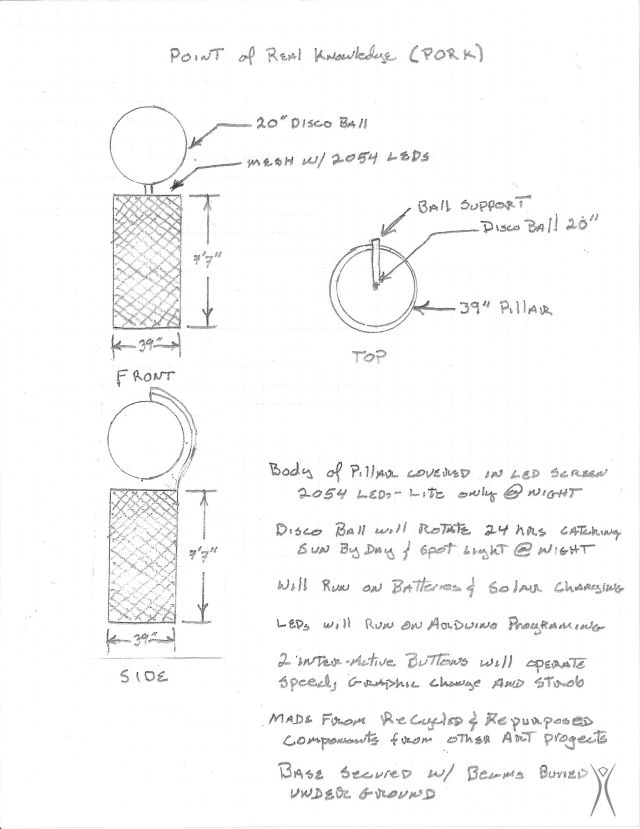 Point of Real Knowledge (PORK)
20" Disco Ball
MESH W/ 2054 LEDs
7'7"
39"
FRONT
Ball Support
Disco Ball 20"
39" Pillar
TOP
7'7"
39"
SIDE
Body of Pillar covered in LED Screen
2054 LEDs - Lite only @ Night
Disco Ball will Rotate 24 hrs catching
Sun By Day & Spot Light @ Night
Will Run on Batteries & Solar Charging
LEDs will Run on Arduino Programing
2 inter-Active Buttons will operate
Speed, Graphic Change and Strob
Made From Recycled & Repurposed
Components from other Art Progects
Base Secured w/ Beams Buried
under Ground